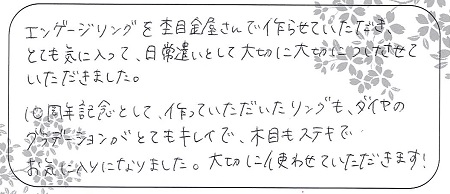 エンゲージリングを杢目金屋さんで作らせていただき、
とても気に入って、日常遣いとして大切に大切につけさせて
いただきました。
10周年記念として、作っていただいたリングも、ダイヤの
グラデーションがとてもキレイで、木目もステキで
お気に入りになりました。大切に使わせていただきます！